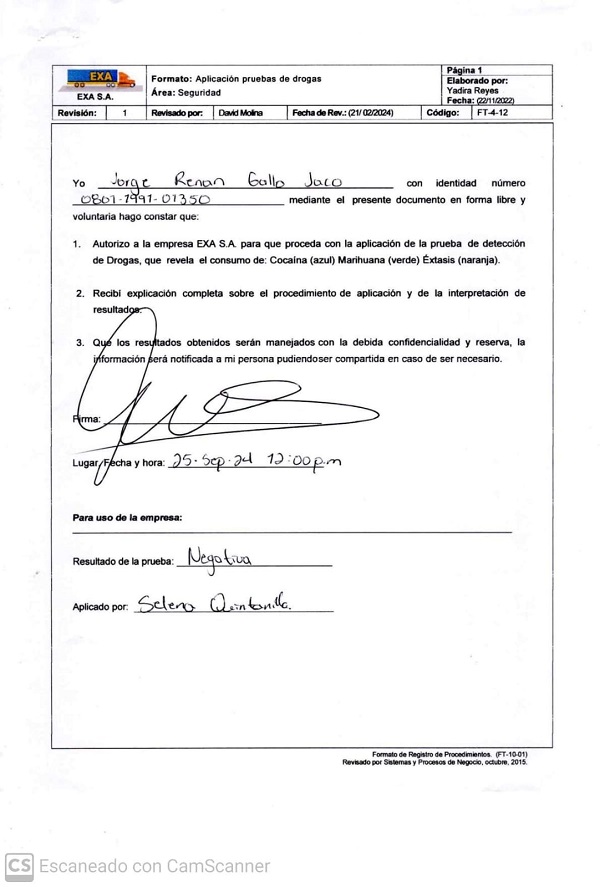 EXA
EXA S.A.
Formato: Aplicación pruebas de drogas
Área: Seguridad
Página 1
Elaborado por:
Yadira Reyes
Fecha: (22/11/2022)
Revisión: 1 Revisado por: David Molina Fecha de Rev.: (21/02/2024) Código: FT-4-12
Yo Jorge Renan Gallo Jaco con identidad número
0801-1991-01350 mediante el presente documento en forma libre y
voluntaria hago constar que:
1. Autorizo a la empresa EXA S.A. para que proceda con la aplicación de la prueba de detección
de Drogas, que revela el consumo de: Cocaína (azul) Marihuana (verde) Éxtasis (naranja).
2. Recibí explicación completa sobre el procedimiento de aplicación y de la interpretación de
resultados.
3. Que los resultados obtenidos serán manejados con la debida confidencialidad y reserva, la
información será notificada a mi persona pudiendoser compartida en caso de ser necesario.
Firma:
Lugar, Fecha y hora: 25-Sep-24 12:00p.m
Para uso de la empresa:
Resultado de la prueba: Negativa
Aplicado por: Selena Quintanilla.
Formato de Registro de Procedimientos. (FT-10-01)
Revisado por Sistemas y Procesos de Negocio, octubre, 2015.
CS Escaneado con CamScanner